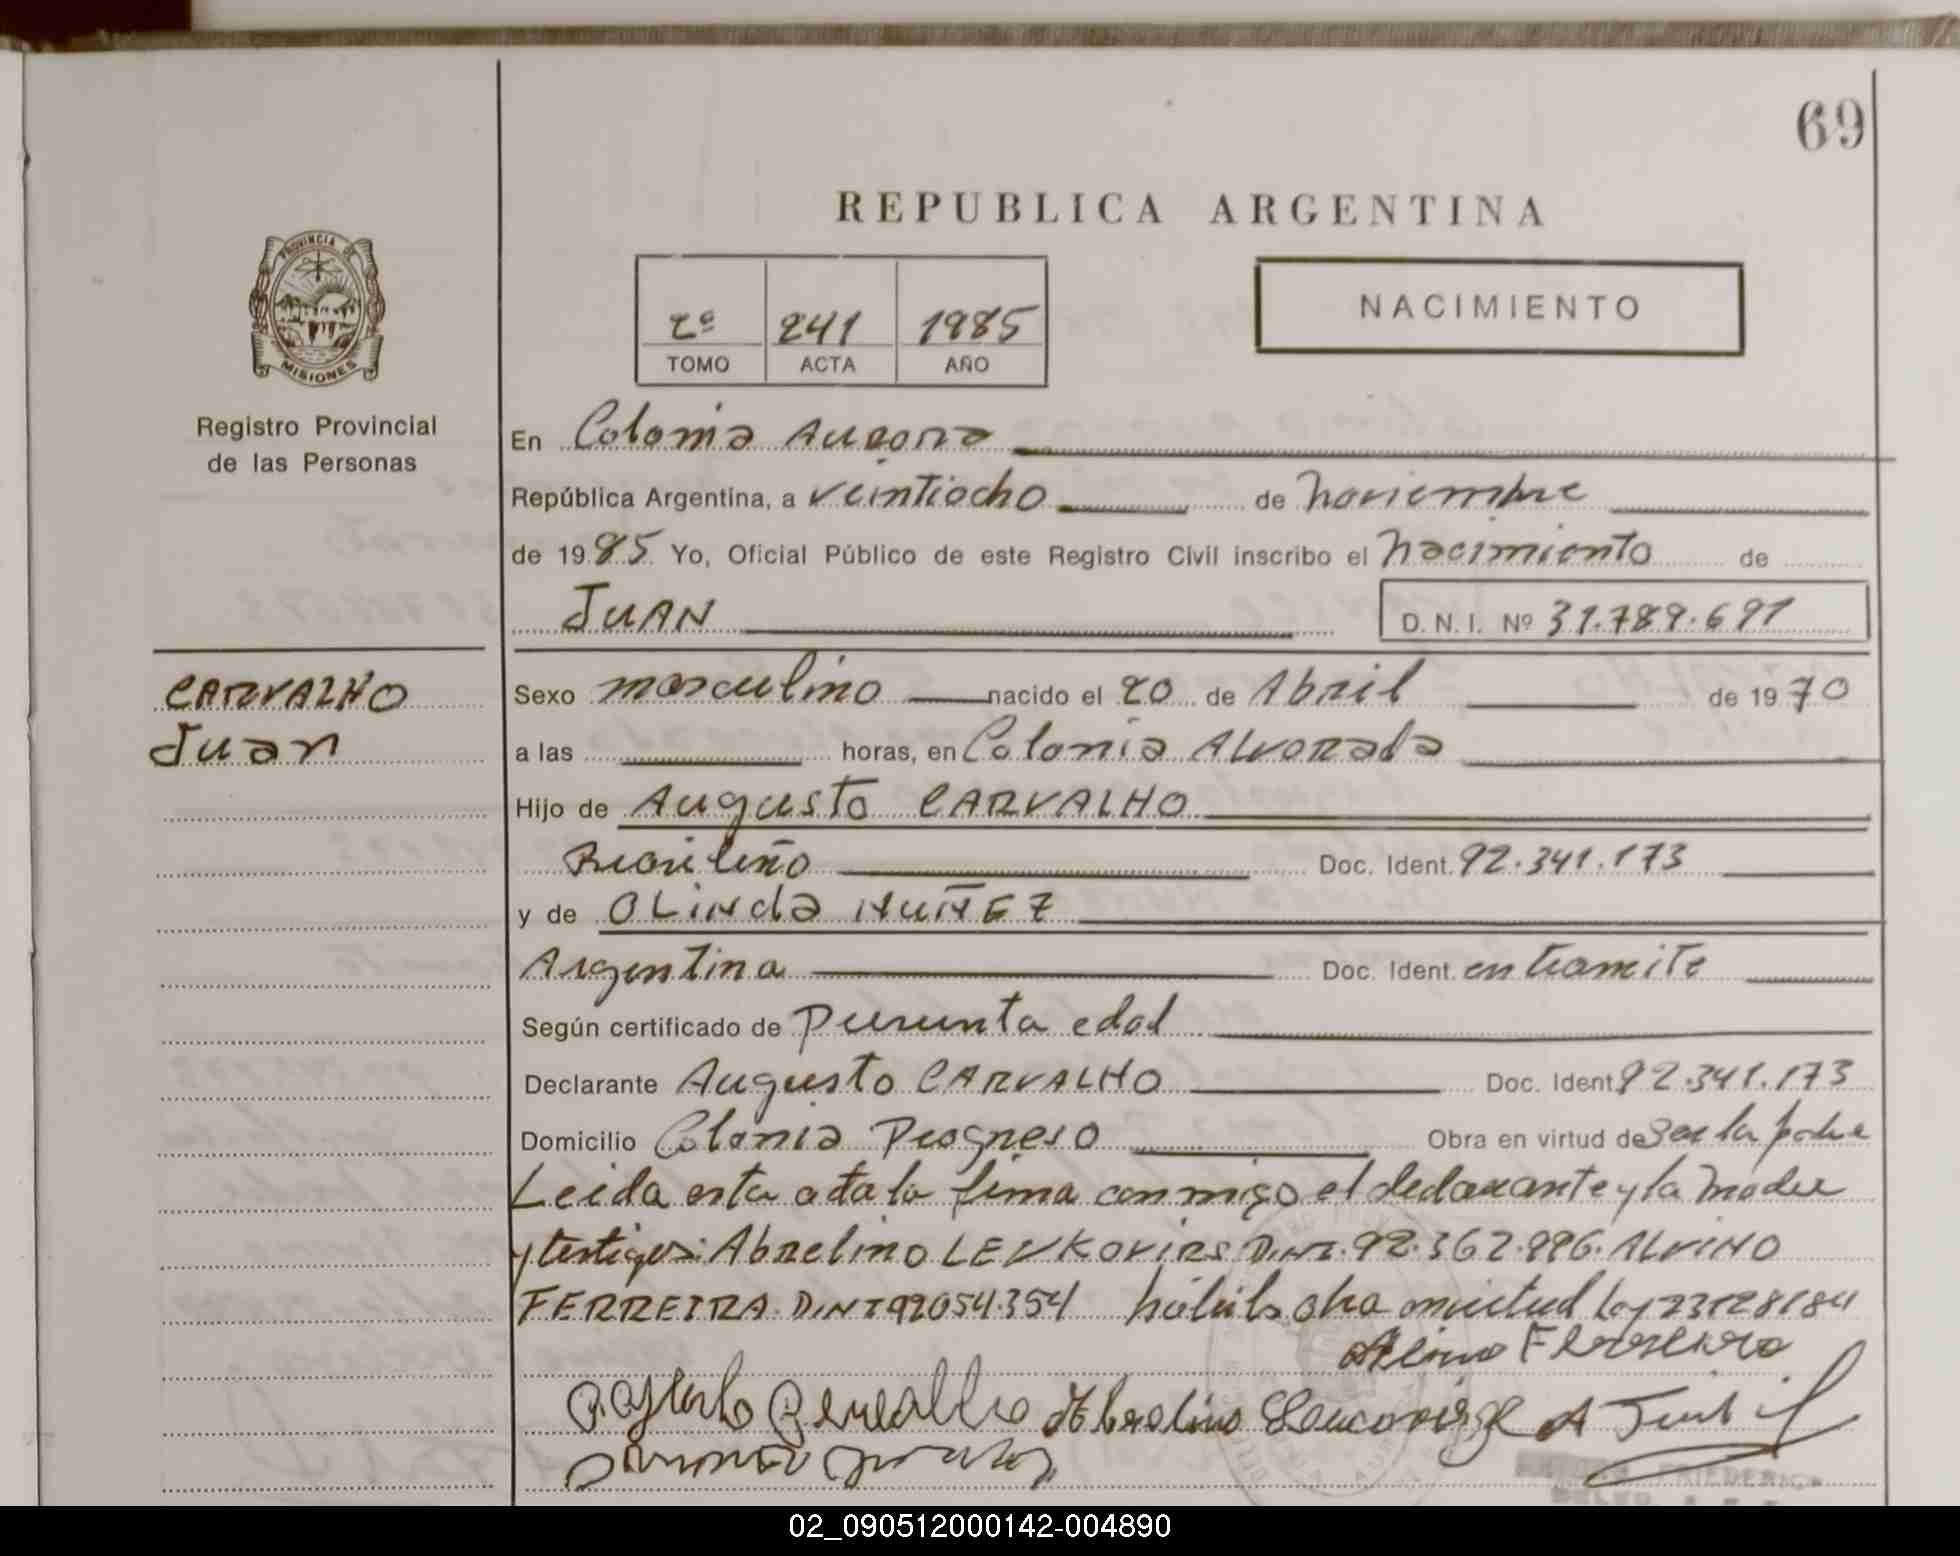 69
REPUBLICA ARGENTINA
PROVINCIA DE
MISIONES
Registro Provincial
de las Personas
2º 241 1985
TOMO ACTA AÑO
NACIMIENTO
En Colonia Aurora
República Argentina, a veintiocho de noviembre
de 1985 Yo, Oficial Público de este Registro Civil inscribo el nacimiento de
JUAN D. N. I. Nº 31.789.691
CARVALHO
Juan
Sexo masculino nacido el 20 de Abril de 1970
a las horas, en Colonia Alvorada
Hijo de Augusto CARVALHO
Brasileño Doc. Ident. 92.341.173
y de OLINda NUÑEZ
Argentina Doc. Ident. en tramite
Según certificado de Presunta edad
Declarante Augusto CARVALHO Doc. Ident. 92.341.173
Domicilio Colonia Progreso Obra en virtud de Ser la padre
Leida esta acta la firma conmigo el declarante y la madre
y testigos: Abrelino LEVKOVIRS D.N.I. 92.362.996. ALVINO
FERREIRA. D.N.I 92054.354 obra en virtud Ley 23128/84
Ferreira
Abrelino
FRIEDERICH
02_090512000142-004890